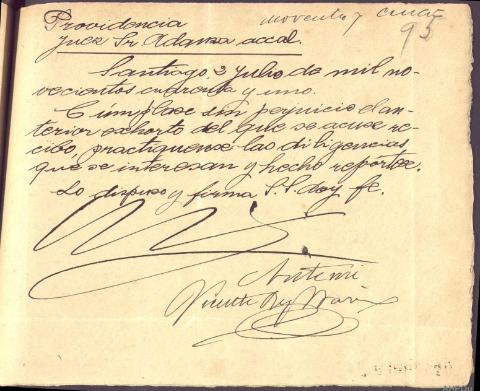 noventa y cinco
95
Providencia
Juez Sr. Adarza, accal.
Santiago, 2 Julio de mil no-
vecientos cuarenta y uno.
Cúmplase sin perjuicio el an-
terior exhorto del que se acuse re-
cibo, practíquense las diligencias,
que se interesan y hecho repórtese.
Lo dispuso y firma S.S. doy fe.
Ante mi
Vicente Rey